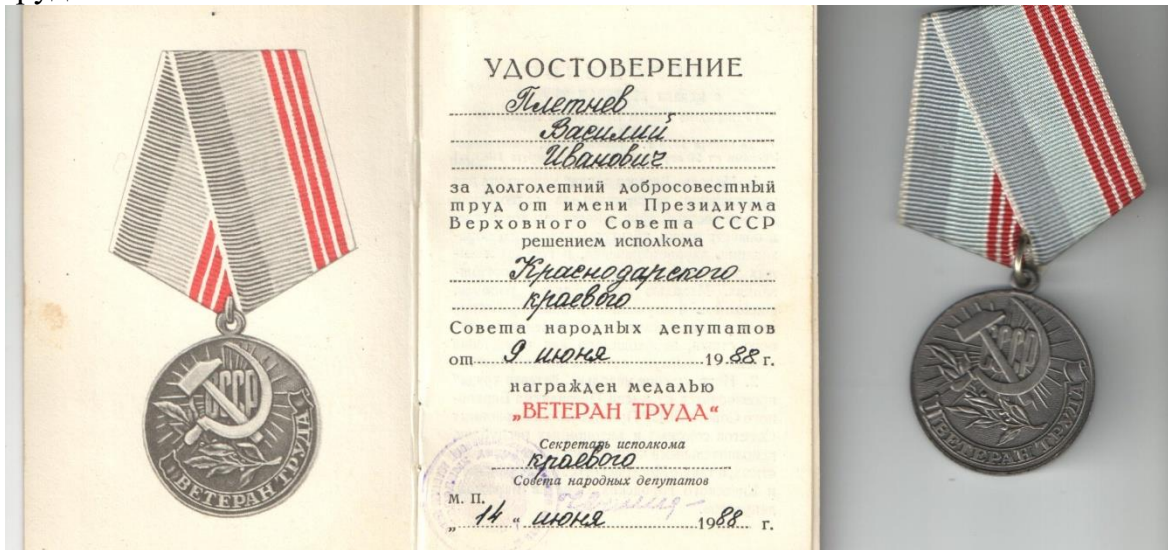 СССР
ВЕТЕРАН ТРУДА
УДОСТОВЕРЕНИЕ
Плетнев
Василий
Иванович
за долголетний добросовестный
труд от имени Президиума
Верховного Совета СССР
решением исполкома
Краснодарского
краевого
Совета народных депутатов
от 9 июня 1988 г.
награжден медалью
„ВЕТЕРАН ТРУДА“
Секретарь исполкома
краевого
Совета народных депутатов
М. П.
„ 14 “ июня 1988 г.
СССР
ВЕТЕРАН ТРУДА